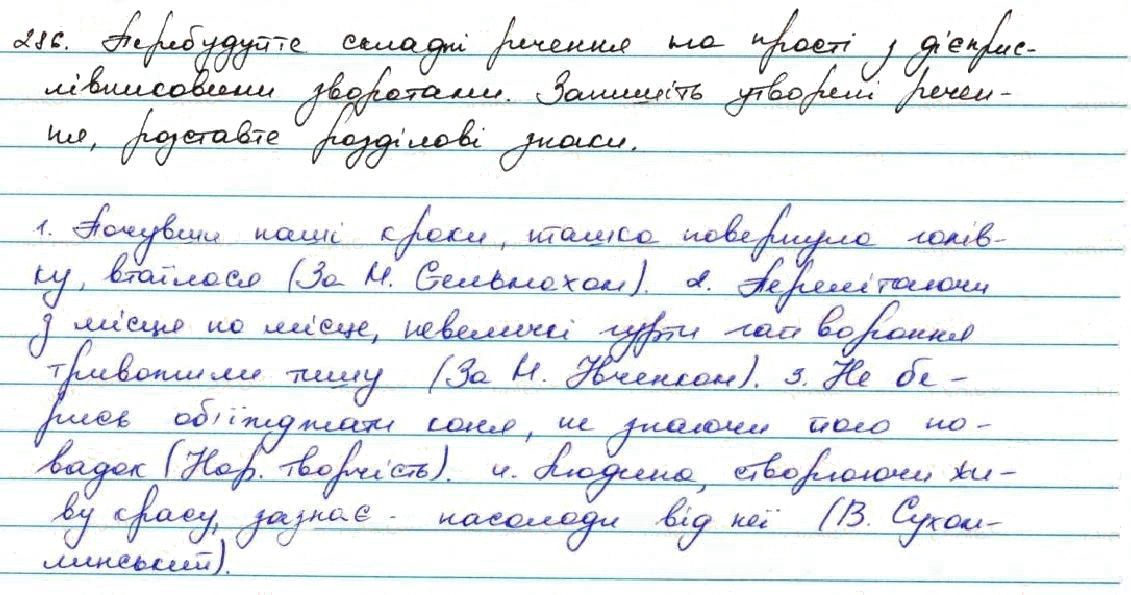 286. Перебудуйте складні речення на прості з дієприс-
лівниковими зворотами. Запишіть утворені речен-
ня, розставте розділові знаки.
1. Почувши наші кроки, пташка повернула голів-
ку, втаїлася (За М. Стельмахом). 2. Перелітаючи
з місця на місце, невеличкі гурти гайвороння
тривожили тишу (За М. Івченком). 3. Не бе-
рись об'їжджати коня, не знаючи його по-
вадок (Нар. творчість). 4. Людина, створюючи жи-
ву красу, зазнає насолоди від неї (В. Сухом-
линський).